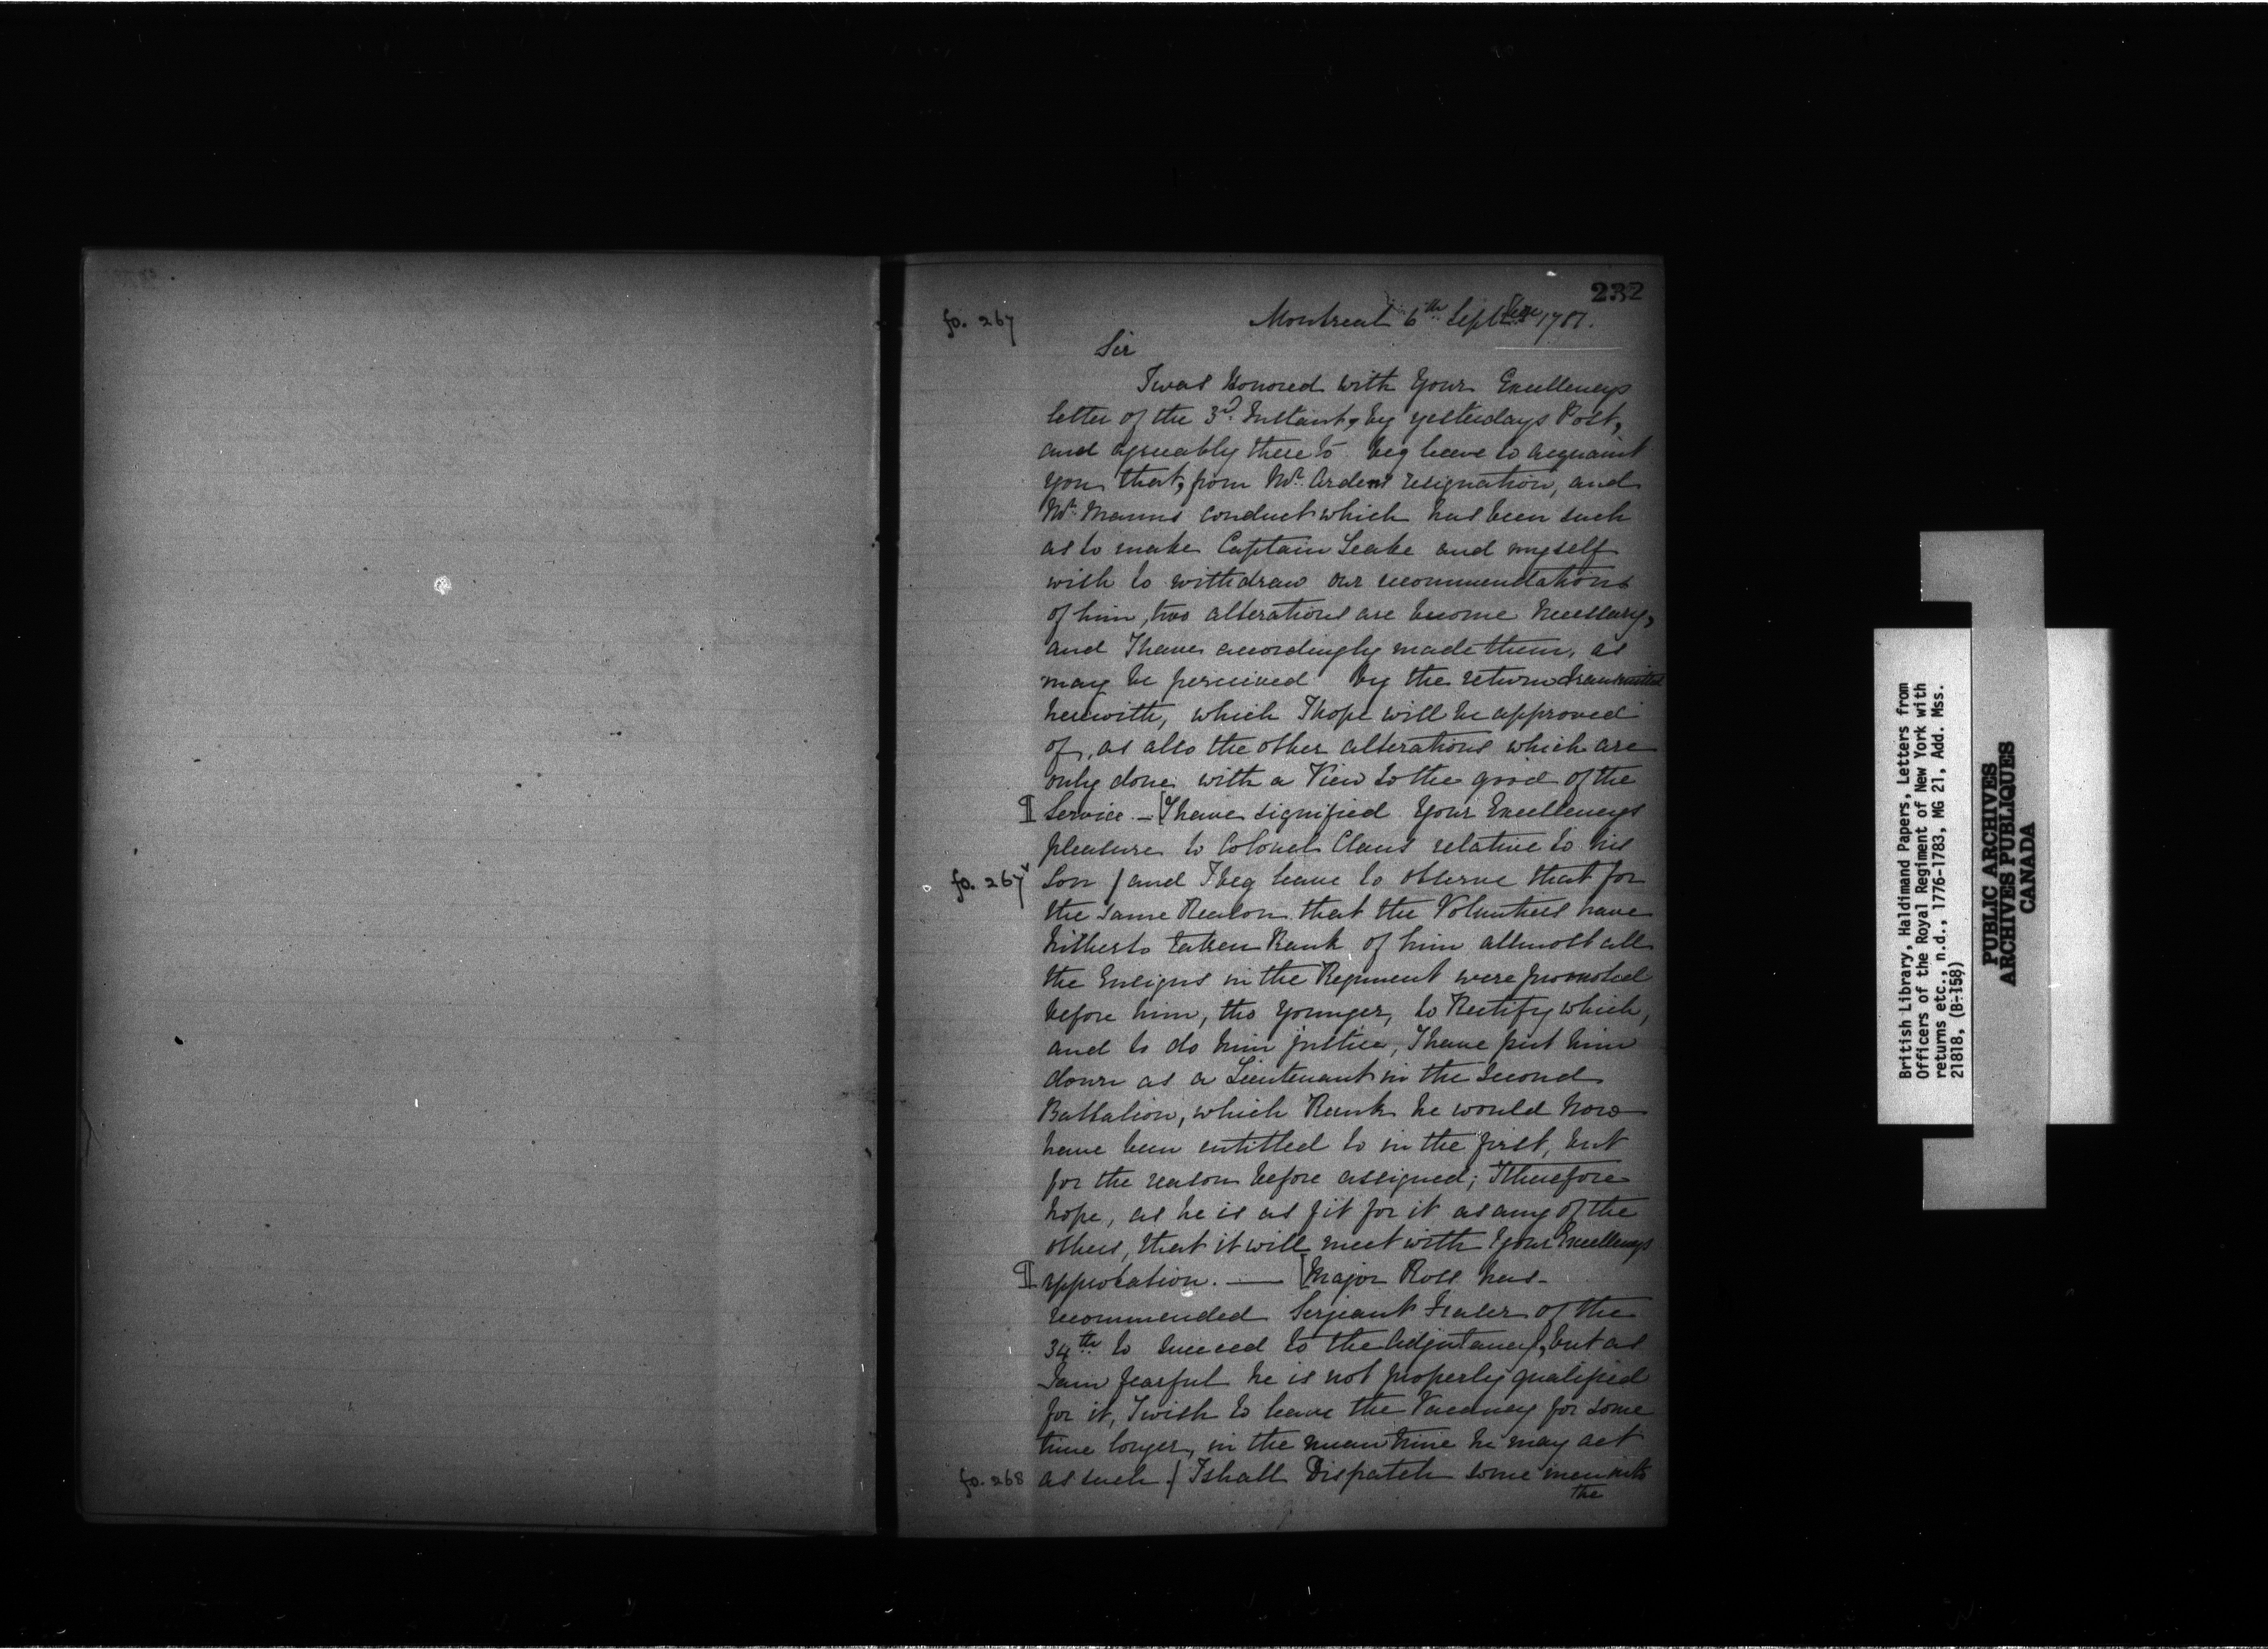 232
fo. 267
Montreal 6th Sept 1781.
Sir
I was Honored with Your Excellencys
letter of the 3d. Instant, by yesterdays Post,
and agreeably thereto beg leave to acquaint
you that, from Mr. Ardens resignation, and
Mr. Manns conduct which has been such
as to make Captain Leake and myself
wish to withdraw our recommendations
of him, two alterations are become Necessary,
and I have accordingly made them, as
may be perceived by the return transmitted
herewith, which I hope will be approved
of, as also the other alterations which are
only done with a View to the good of the
¶ Service. — [I have signified Your Excellencys
pleasure to Colonel Claus relative to his
fo. 267v Son / and I beg leave to observe that for
the same Reason that the Volunteers have
hitherto taken Rank of him allmost all
the Ensigns in the Regiment were promoted
before him, tho younger, to Rectify which,
and to do him justice, I have put him
down as a Lieutenant in the Second
Battalion, which Rank he would now
have been entitled to in the first, but
for the reason before assigned; I therefore
hope, as he is as fit for it as any of the
others, that it will meet with Your Excellencys
¶ approbation. — [Major Ross has
recommended Serjeant Fraser of the
34th to succeed to the Adjutancy, but as
I am fearful he is not properly qualified
for it, I wish to leave the Vacancy for some
time longer, in the mean time he may act
fo. 268 as such / I shall Dispatch some men into
the
British Library, Haldimand Papers, Letters from
Officers of the Royal Regiment of New York with
returns etc., n.d., 1776-1783, MG 21, Add. Mss.
21818, (B-158)
PUBLIC ARCHIVES
ARCHIVES PUBLIQUES
CANADA